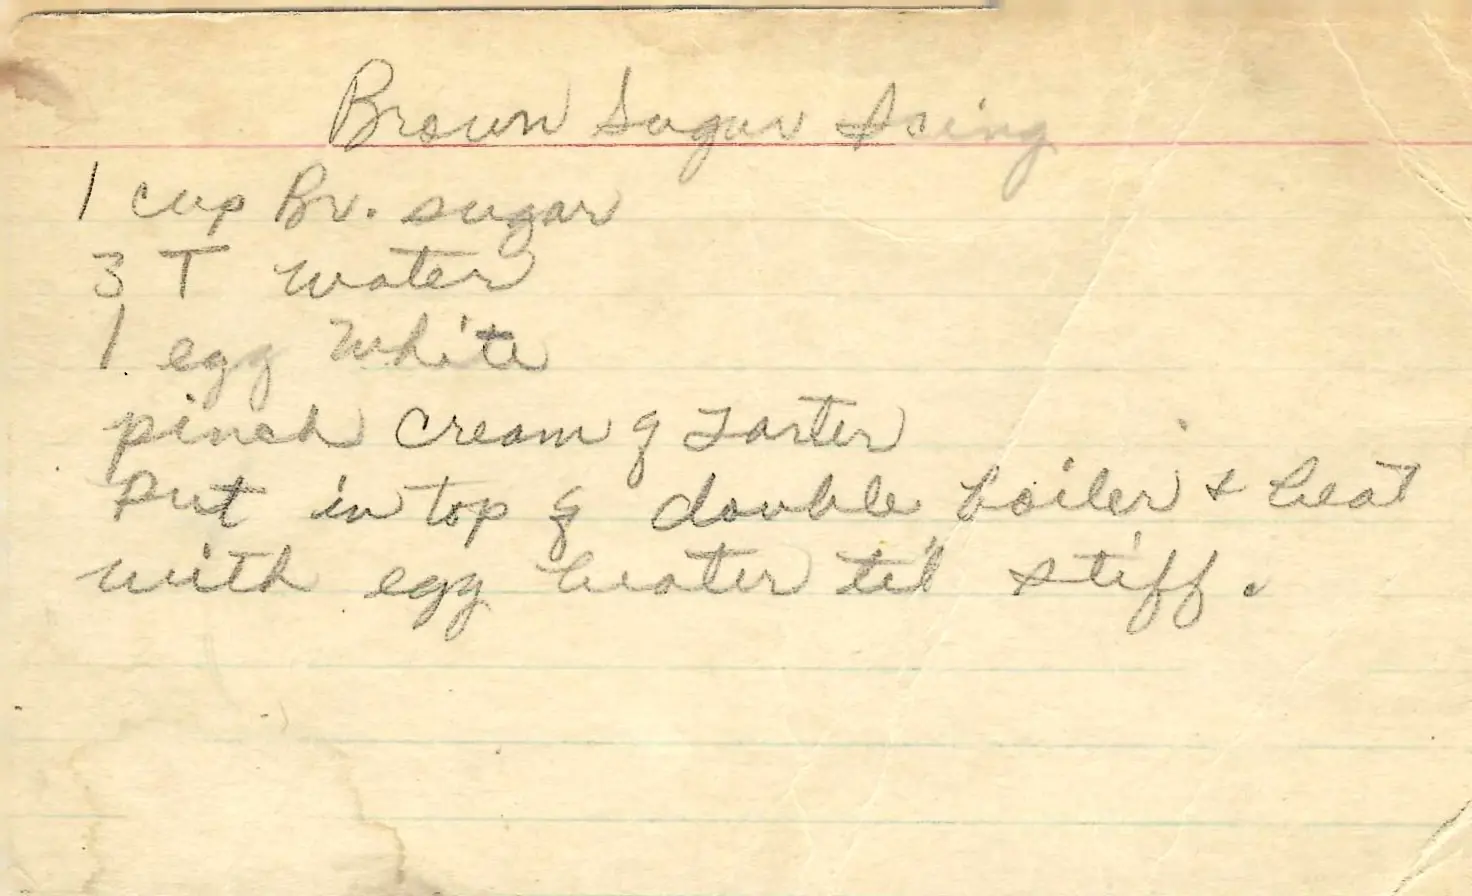 Brown Sugar Icing
1 cup Br. sugar
3 T water
1 egg white
pinch cream of Tarter
Put in top of double boiler & beat
with egg beater til stiff.